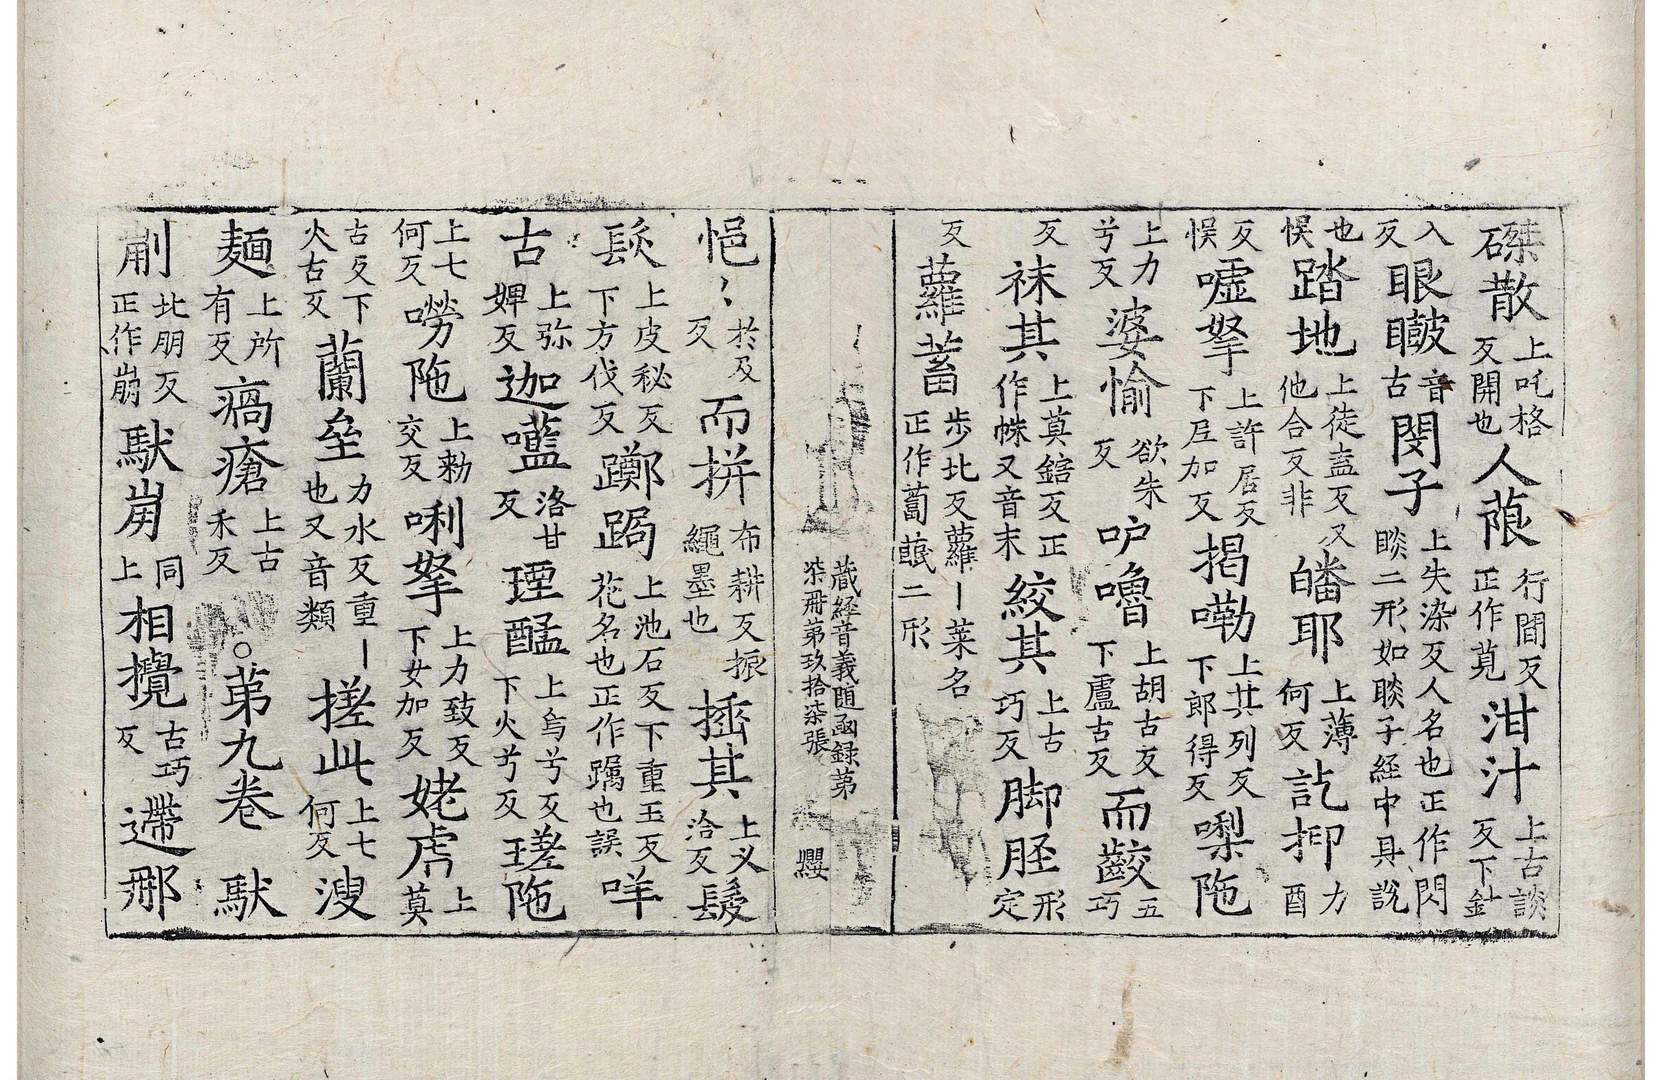 磔散上吒格反開也人䓳行間反正作莧泔汁上古談反下針
入反眼瞰音古閔子上失染反人名也正作閃睒二形如睒子經中具說
也悞踏地上徒盍反又他合反非皤耶上薄何反訖抑力酉
反悞嘘拏上許居反下𡱝加反揭嘞上其列反下郎得反㗚陁
上力兮反婆愉欲朱反咕嚕上胡古反下盧古反而齩五巧
反袜其上莫鎋反正作帓又音末絞其上古巧反脚胫形定
反蘿蓄步北反蘿-菜名正作蔔菔二形
藏經音義随函録第柒册第玖拾柒張 纓
悒〻於及反而拼布耕反振繩墨也插其上义洽反髲
髮上皮秘反下方伐反躑躅上池石反下重玉反花名也正作躅也誤咩
古上弥婢反迦㘕洛甘反瑿醯上烏兮反下火兮反瑳陁
上七何反嘮陁上勑交反唎拏上力致反下女加反姥虎上莫
古反下火古反蘭垒力水反重-也又音類搓此上七何反溲
麺上所有反瘑瘡上古禾反。第九卷 馱
剻北朋反正作崩馱崩同上相攪古巧反遰那